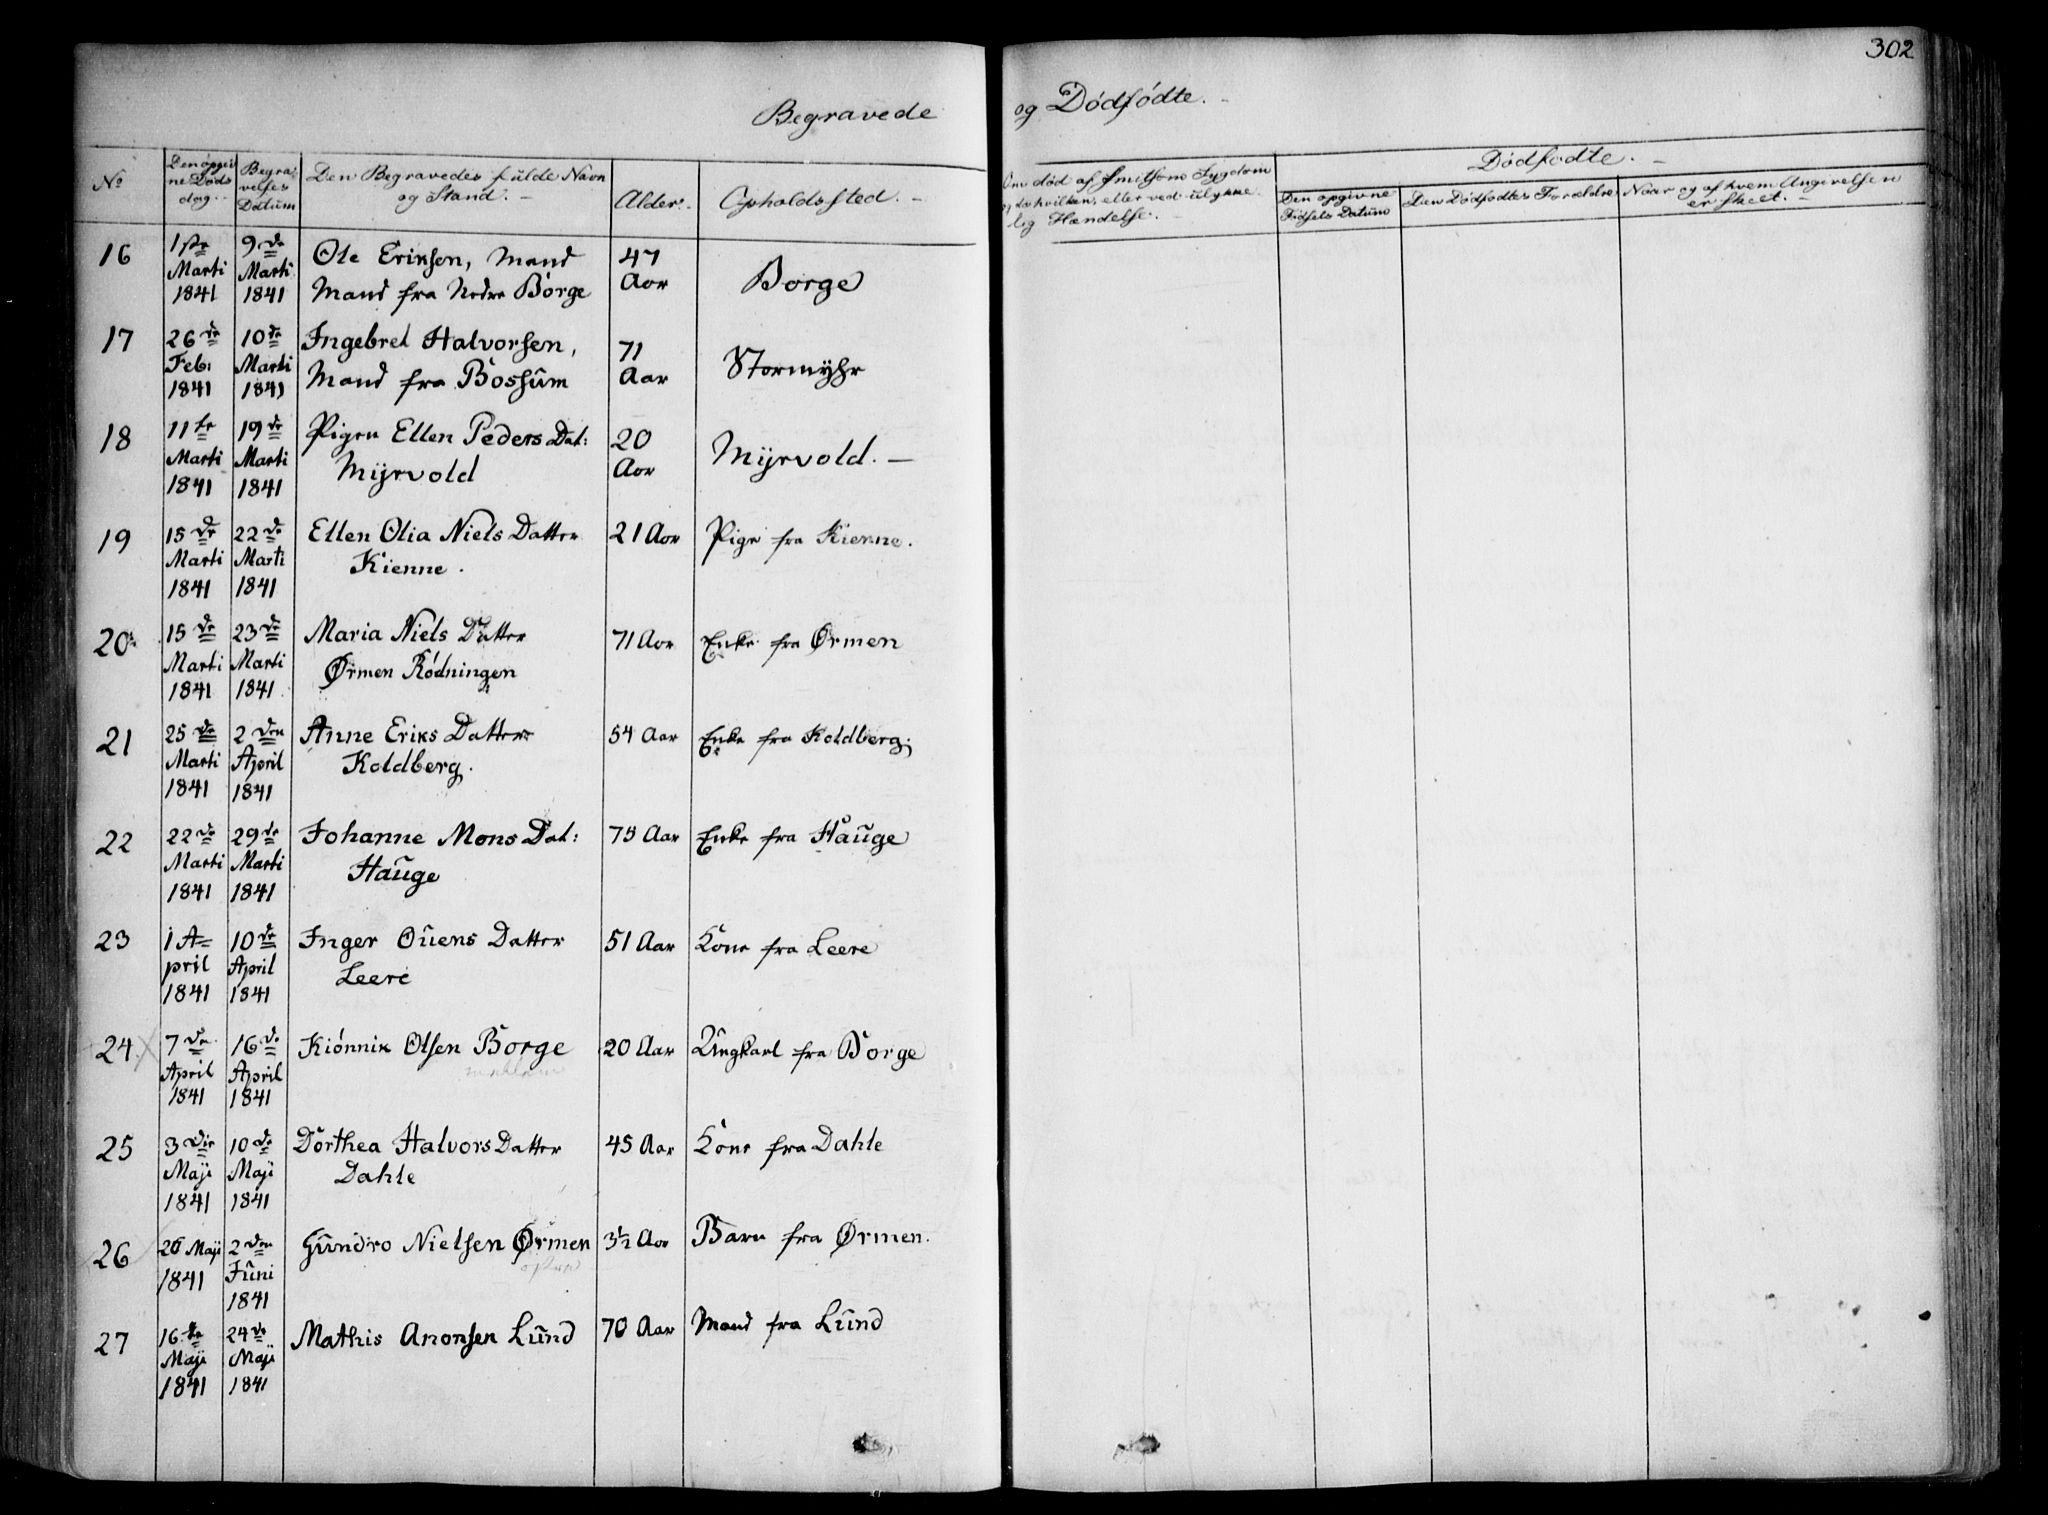 302
Begravede og Dødfødte. -
No
Den opgivne Døds dag. -
Begravelses Datum
Den Begravedes fulde Navn og Stand. -
Alder. -
Opholdssted. -
Om død af Smitsom Sygdom og da hvilken, eller ved ulykkelig Hændelse. -
Dødfødte. -
Den opgivne Fødsels Datum
Den Dødfødtes Forældre
Naar og af hvem Angivelsen er skeet. -
16 1ste Marti 1841 9de Marti 1841 Ole Eriksen, Mand
Mand fra Nedre Borge 47 Aar Borge
17 26de Feb: 1841 10de Marti 1841 Ingebret Halvorsen,
Mand fra Bossum 71 Aar Stormyhr
18 11te Marti 1841 19de Marti 1841 Pigen Ellen Peders Dat:
Myrvold 20 Aar Myrvold. -
19 15de Marti 1841 22de Marti 1841 Ellen Olia Niels Datter
Kienne. 21 Aar Pige fra Kienne.
20 15de Marti 1841 23de Marti 1841 Maria Niels Datter
Ørmen Rødningen 71 Aar Enke fra Ørmen
21 25de Marti 1841 2den April 1841 Anne Eriks Datter
Koldberg. 54 Aar Enke fra Koldberg.
22 22de Marti 1841 29de Marti 1841 Johanne Mons Dat:
Hauge 75 Aar Enke fra Hauge
23 1 April 1841 10de April 1841 Inger Ouens Datter
Leere 51 Aar Kone fra Leere
24 7de April 1841 16de April 1841 Kiønnik Olsen Borge 20 Aar Ungkarl fra Borge
25 3die Maji 1841 10de Maji 1841 Dorthea Halvors Datter
Dahle 45 Aar Kone fra Dahle
26 26 Maji 1841 2den Juni 1841 Gundro Nielsen Ørmen 3½ Aar Barn fra Ørmen.
27 16de Maji 1841 24de Maji 1841 Mathis Aronsen Lund 70 Aar Mand fra Lund